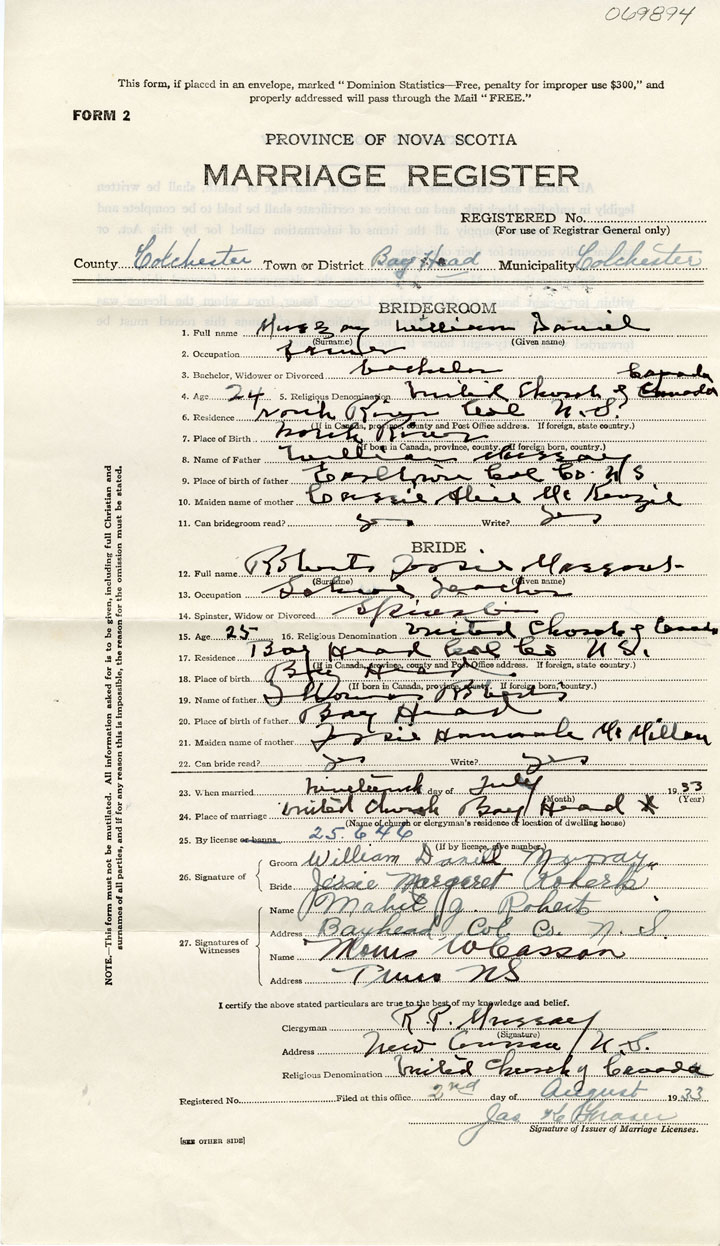 069894
This form, if placed in an envelope, marked "Dominion Statistics—Free, penalty for improper use $300," and
properly addressed will pass through the Mail "FREE."
FORM 2
PROVINCE OF NOVA SCOTIA
MARRIAGE REGISTER
REGISTERED No.
(For use of Registrar General only)
County Colchester Town or District Bay Head Municipality Colchester
BRIDEGROOM
1. Full name Murray William Daniel
(Surname) (Given name)
2. Occupation farmer
3. Bachelor, Widower or Divorced bachelor
Canada
4. Age 24 5. Religious Denomination United Church of Canada
6. Residence North River Col N.S.
(If in Canada, province, county and Post Office address. If foreign, state country.)
7. Place of Birth North River
(If born in Canada, province, county. If foreign born, country.)
8. Name of Father William Murray
9. Place of birth of father Earltown Col Co. N S
10. Maiden name of mother Cassie Alice Mc Kenzie
11. Can bridegroom read? yes Write? yes
BRIDE
12. Full name Roberts Jessie Margaret
(Surname) (Given name)
13. Occupation School Teacher
14. Spinster, Widow or Divorced Spinster
15. Age 25 16. Religious Denomination United Church of Canada
17. Residence Bay Head Col Co N.S.
(If in Canada, province, county and Post Office address. If foreign, state country.)
18. Place of birth Bay Head
(If born in Canada, province, county. If foreign born, country.)
19. Name of father Roberts
20. Place of birth of father Bay Head
21. Maiden name of mother Jessie Hannah Mc Millan
22. Can bride read? yes Write? yes
23. When married nineteenth day of July 1933
(Month) (Year)
24. Place of marriage United Church Bay Head X
(Name of church or clergyman's residence or location of dwelling house)
25. By license or banns 25.646
(If by licence, give number.)
26. Signature of
Groom William Daniel Murray
Bride Jessie Margaret Roberts
27. Signatures of Witnesses
Name J. Roberts
Address Bayhead Col. Co. N. S.
Name Casson
Address Truro NS
I certify the above stated particulars are true to the best of my knowledge and belief.
Clergyman R.P. Murray
(Signature)
Address New Annan N.S.
Religious Denomination United Church of Canada
Registered No. Filed at this office 2nd day of August 1933
Jas Fraser
Signature of Issuer of Marriage Licenses.
[SEE OTHER SIDE]
NOTE.—This form must not be mutilated. All information asked for is to be given, including full Christian and
surnames of all parties, and if for any reason this is impossible, the reason for the omission must be stated.